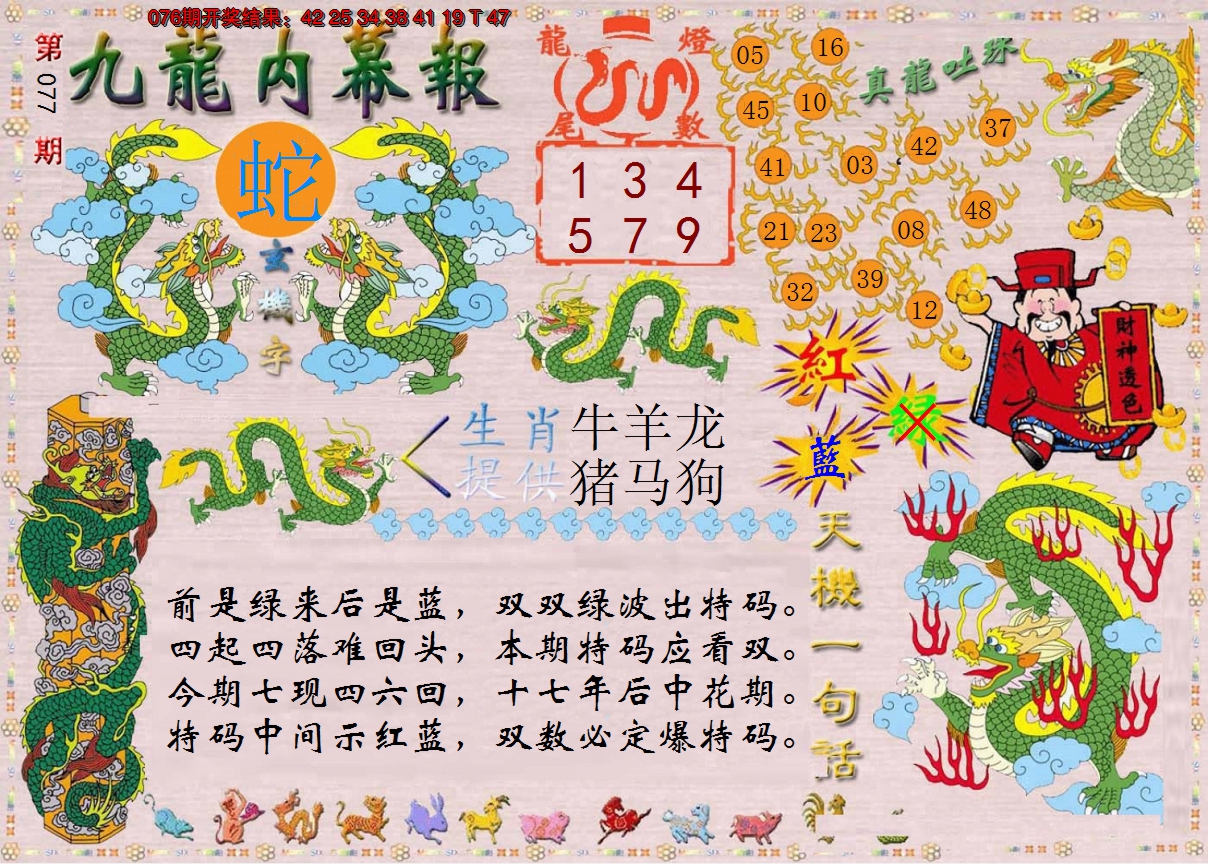 076期开奖结果：42 25 34 38 41 19 T 47
第077期
九龍内幕報
蛇
玄機字
龍燈
尾數
1 3 4
5 7 9
真龍吐珠
05 16
45 10
41 03 42 37
21 23 08 48
32 39 12
紅
绿
藍
財神透色
生肖 牛羊龙
提供 猪马狗
前是绿来后是蓝，双双绿波出特码。
四起四落难回头，本期特码应看双。
今期七现四六回，十七年后中花期。
特码中间示红蓝，双数必定爆特码。
天機一句話